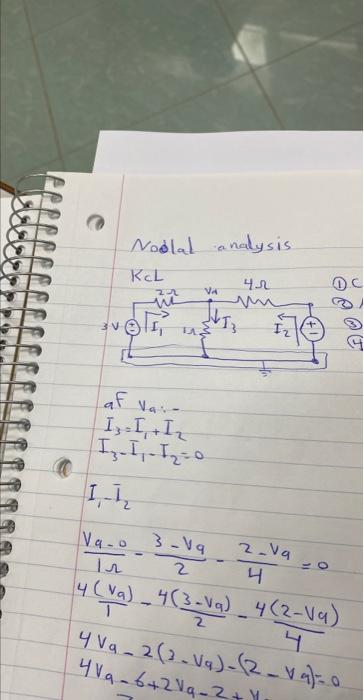 Nodal analysis
KCL
2Ω Va 4Ω ① C
②
3V I₁ 1Ω I₃ I₂ ③
④
at Va:-
I₃=I₁+I₂
I₃-I₁-I₂=0
I₁-I₂
Va-0/1Ω - 3-Va/2 - 2-Va/4 =0
4(Va)/1 - 4(3-Va)/2 - 4(2-Va)/4
4Va-2(3-Va)-(2-Va)=0
4Va-6+2Va-2+V